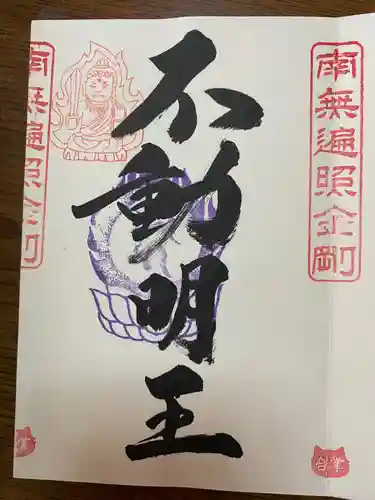 南無遍照金剛
不動明王
南無遍照金剛
合掌